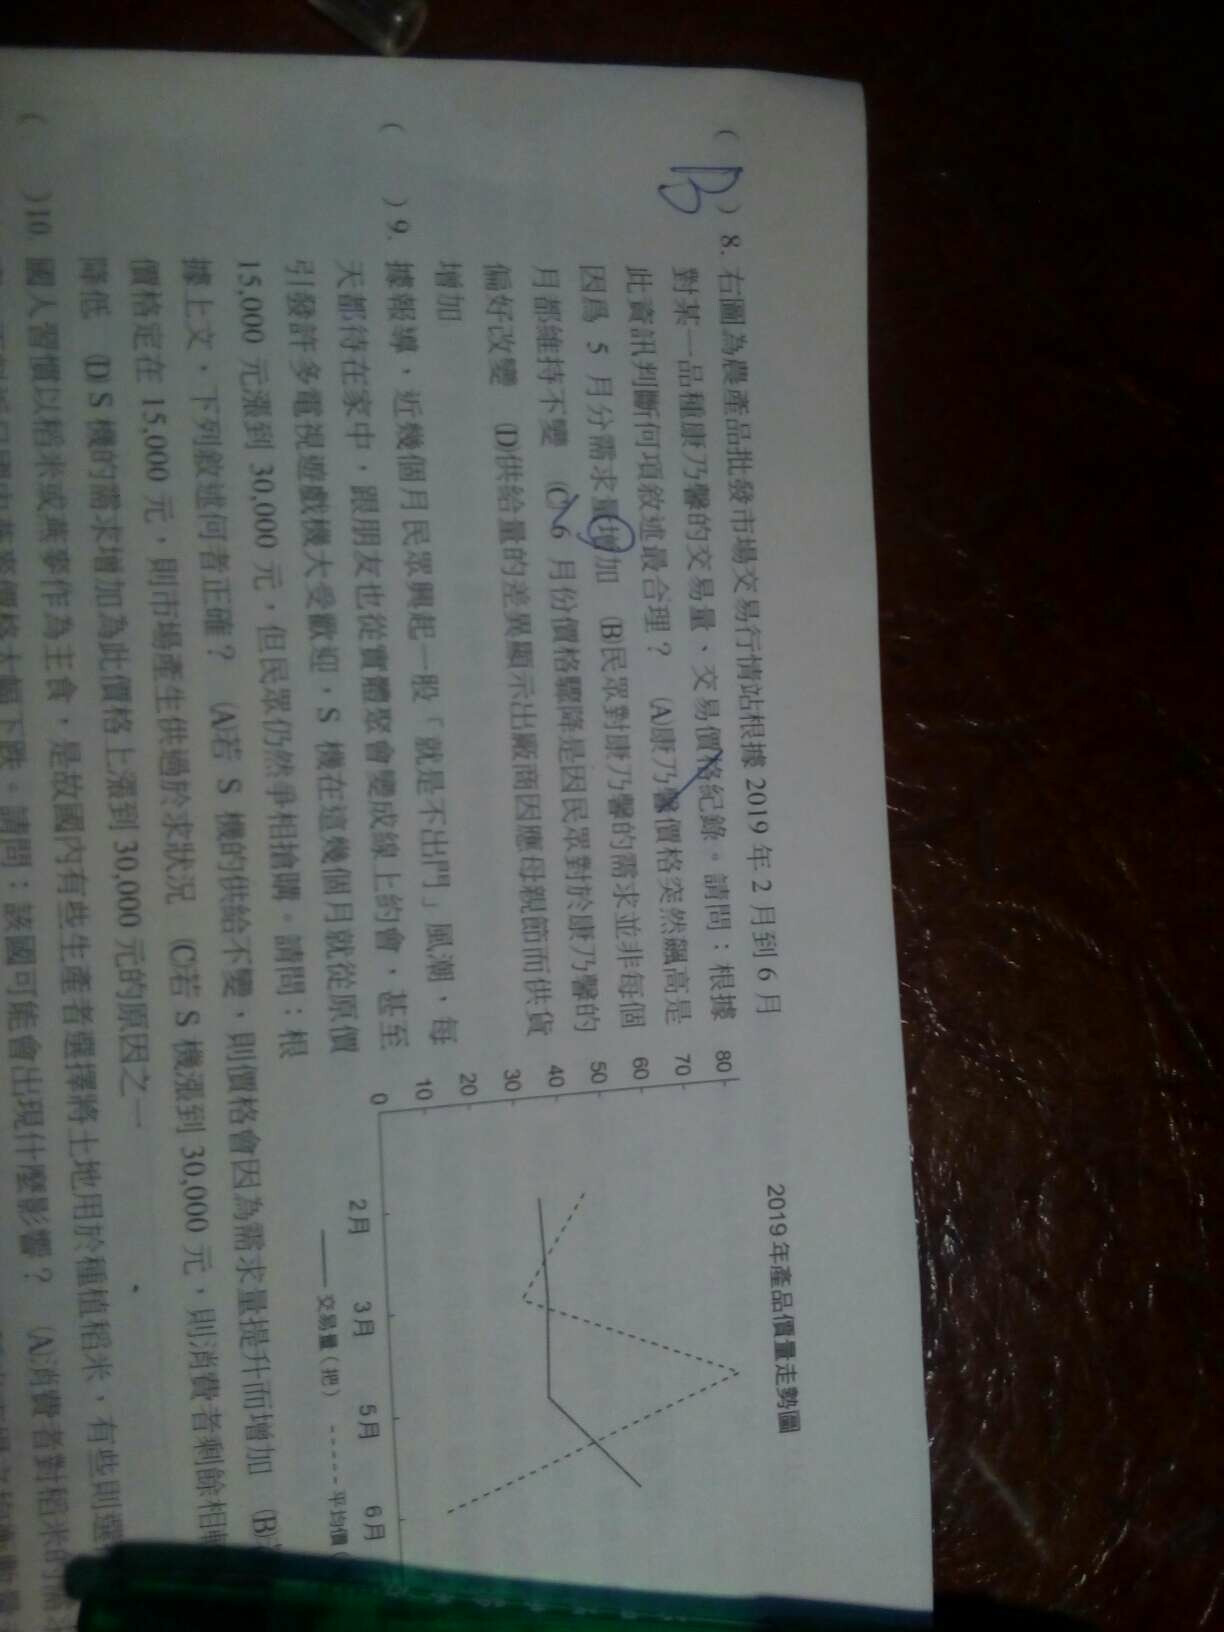 ( B ) 8. 右圖為農產品批發市場交易行情站根據 2019 年 2 月到 6 月
對某一品種康乃馨的交易量、交易價格紀錄。請問：根據
此資訊判斷何項敘述最合理？ (A)康乃馨價格突然飆高是
因為 5 月分需求量增加 (B)民眾對康乃馨的需求並非每個
月都維持不變 (C)6 月份價格驟降是因民眾對於康乃馨的
偏好改變 (D)供給量的差異顯示出廠商因應母親節而供貨
增加
2019年產品價量走勢圖
80
70
60
50
40
30
20
10
0
2月 3月 5月 6月
交易量（把） 平均價（
( ) 9. 據報導，近幾個月民眾興起一股「就是不出門」風潮，每
天都待在家中，跟朋友也從實體聚會變成線上約會，甚至
引發許多電視遊戲機大受歡迎，S 機在這幾個月就從原價
15,000 元漲到 30,000 元，但民眾仍然爭相搶購。請問：根
據上文，下列敘述何者正確？ (A)若 S 機的供給不變，則價格會因為需求量提升而增加 (B)
價格定在 15,000 元，則市場產生供過於求狀況 (C)若 S 機漲到 30,000 元，則消費者剩餘相
降低 (D) S 機的需求增加為此價格上漲到 30,000 元的原因之一
( )10. 國人習慣以稻米或燕麥作為主食，是故國內有些生產者選擇將土地用於種植稻米，有些則選
價格大幅下跌。請問：該國可能會出現什麼影響？ (A)消費者對稻米的需